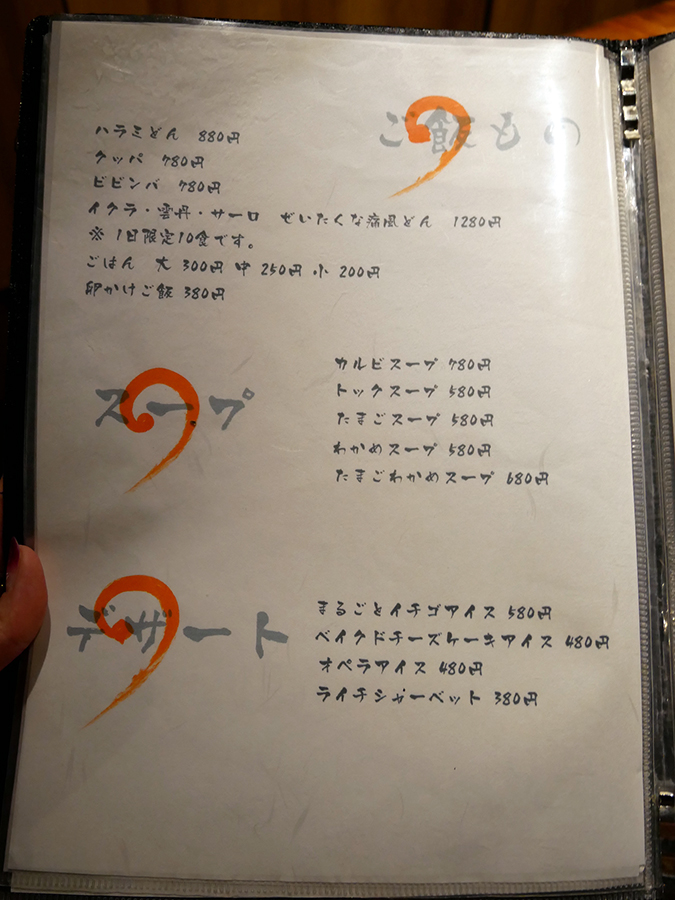 ご飯もの
ハラミどん 880円
クッパ 780円
ビビンバ 780円
イクラ・雲丹・サーロ ぜいたくな痛風どん 1280円
※ 1日限定10食です。
ごはん 大 300円 中 250円 小 200円
卵かけご飯 380円
スープ
カルビスープ 780円
トックスープ 580円
たまごスープ 580円
わかめスープ 580円
たまごわかめスープ 680円
デザート
まるごとイチゴアイス 580円
ベイクドチーズケーキアイス 480円
オペラアイス 480円
ライチシャーベット 380円